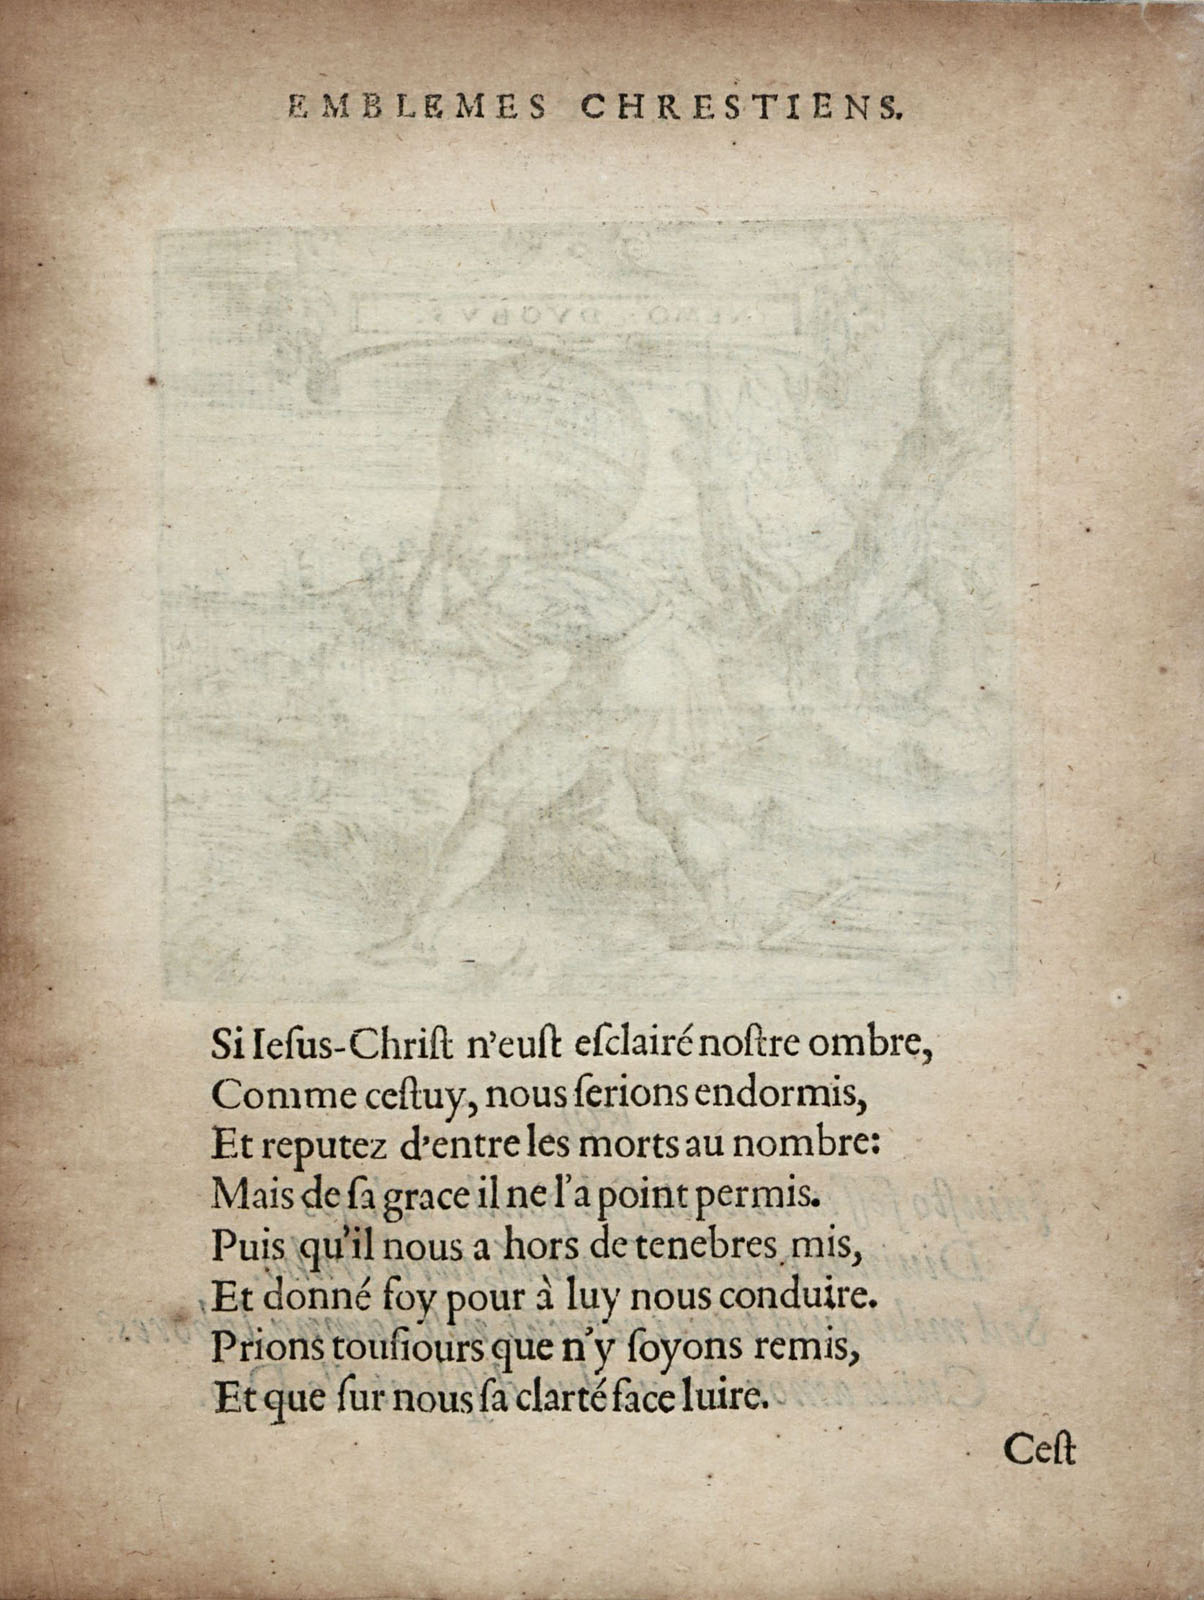 EMBLEMES CHRESTIENS.
NEMO DVOBVS.
Si Ieſus-Chriſt n'euſt eſclairé noſtre ombre,
Comme ceſtuy, nous ſerions endormis,
Et reputez d'entre les morts au nombre:
Mais de ſa grace il ne l'a point permis.
Puis qu'il nous a hors de tenebres mis,
Et donné foy pour à luy nous conduire.
Prions touſiours que n'y ſoyons remis,
Et que ſur nous ſa clarté face luire.
Ceſt